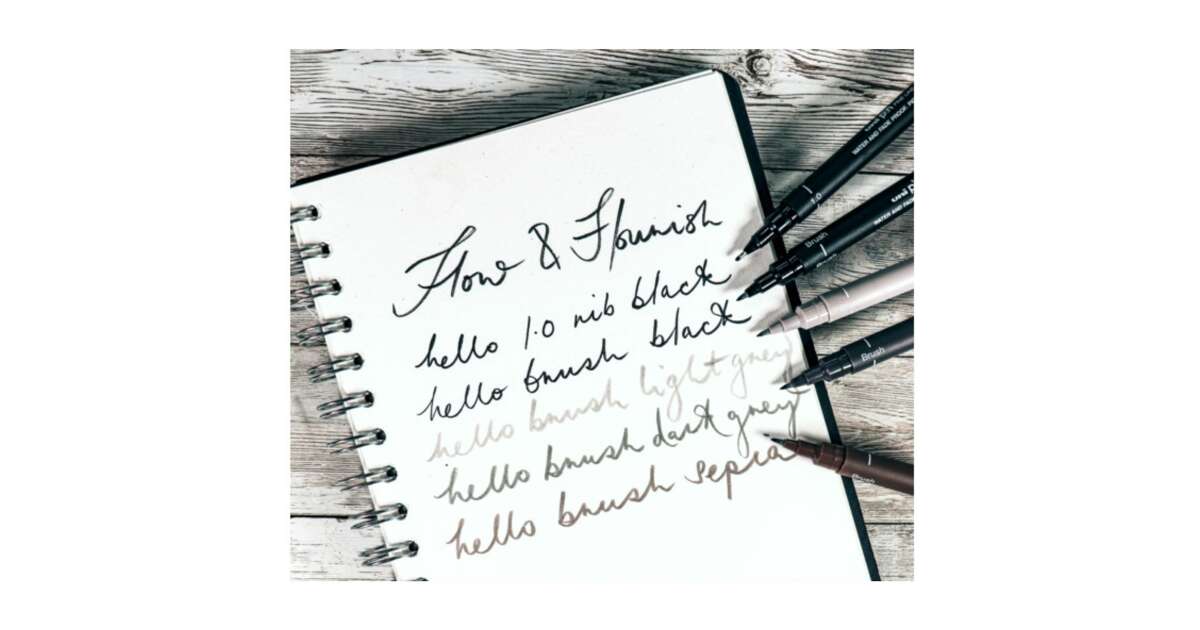 Flow & Flourish
hello 1.0 nib black
hello brush black
hello brush light grey
hello brush dark grey
hello brush sepia
1.0
WATER AND FADE PROOF
uni
Brush
WATER AND FADE
Brush